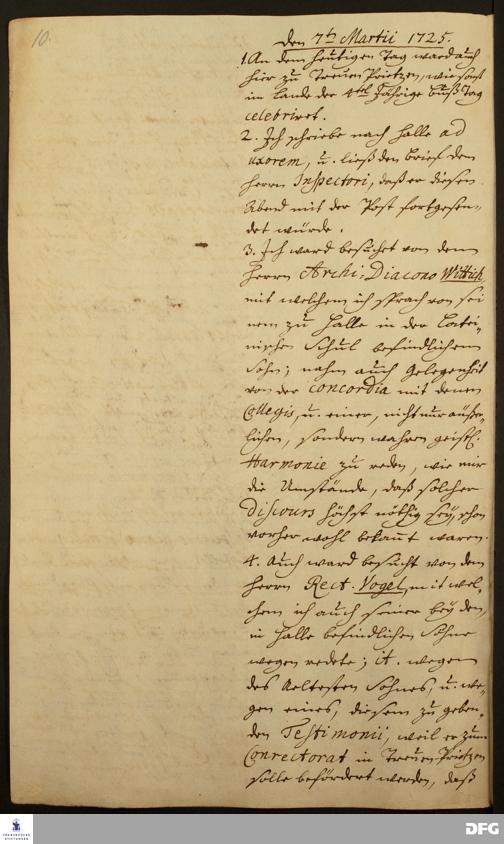 10.
den 7th Martii 1725.
1. An dem heutigen Tag ward auch
hier zu Treuen Prietzen, wie sonst
im Lande der 4tel Jährige Buß Tag
celebriret.
2. Ich schriebe nach Halle ad
uxorem, u. ließ den Brief dem
Herrn Inspectori, daß er diesen
Abend mit der Post fortgesen-
det würde.
3. Ich ward besuchet von dem
Herrn Archi-Diacono Wittich,
mit welchem ich sprach von sei
nem zu Halle in der Latei-
nischen Schul befindlichem
Sohn; nahm auch Gelegenheit
von der concordia mit denen
Collegis, u. einer, nicht nur äußer-
lichen, sondern wahren geistl.
Harmonie zu reden, wie mir
die Umstände, daß solcher
Discours höchst nöthig sey, schon
vorher wohl bekant waren.
4. Auch ward besucht von dem
Herrn Rect. Vogel, mit wel-
chem ich auch seiner beyden,
in Halle befindlichen Söhne
wegen redete; it. wegen
des Aeltesten Sohnes, u. we-
gen eines, diesem zu geben-
den Testimonii, weil er zum
Conrectorat in Treuen Prietzen
solle befördert werden, daß
FRANCKESCHE
STIFTUNGEN
DFG